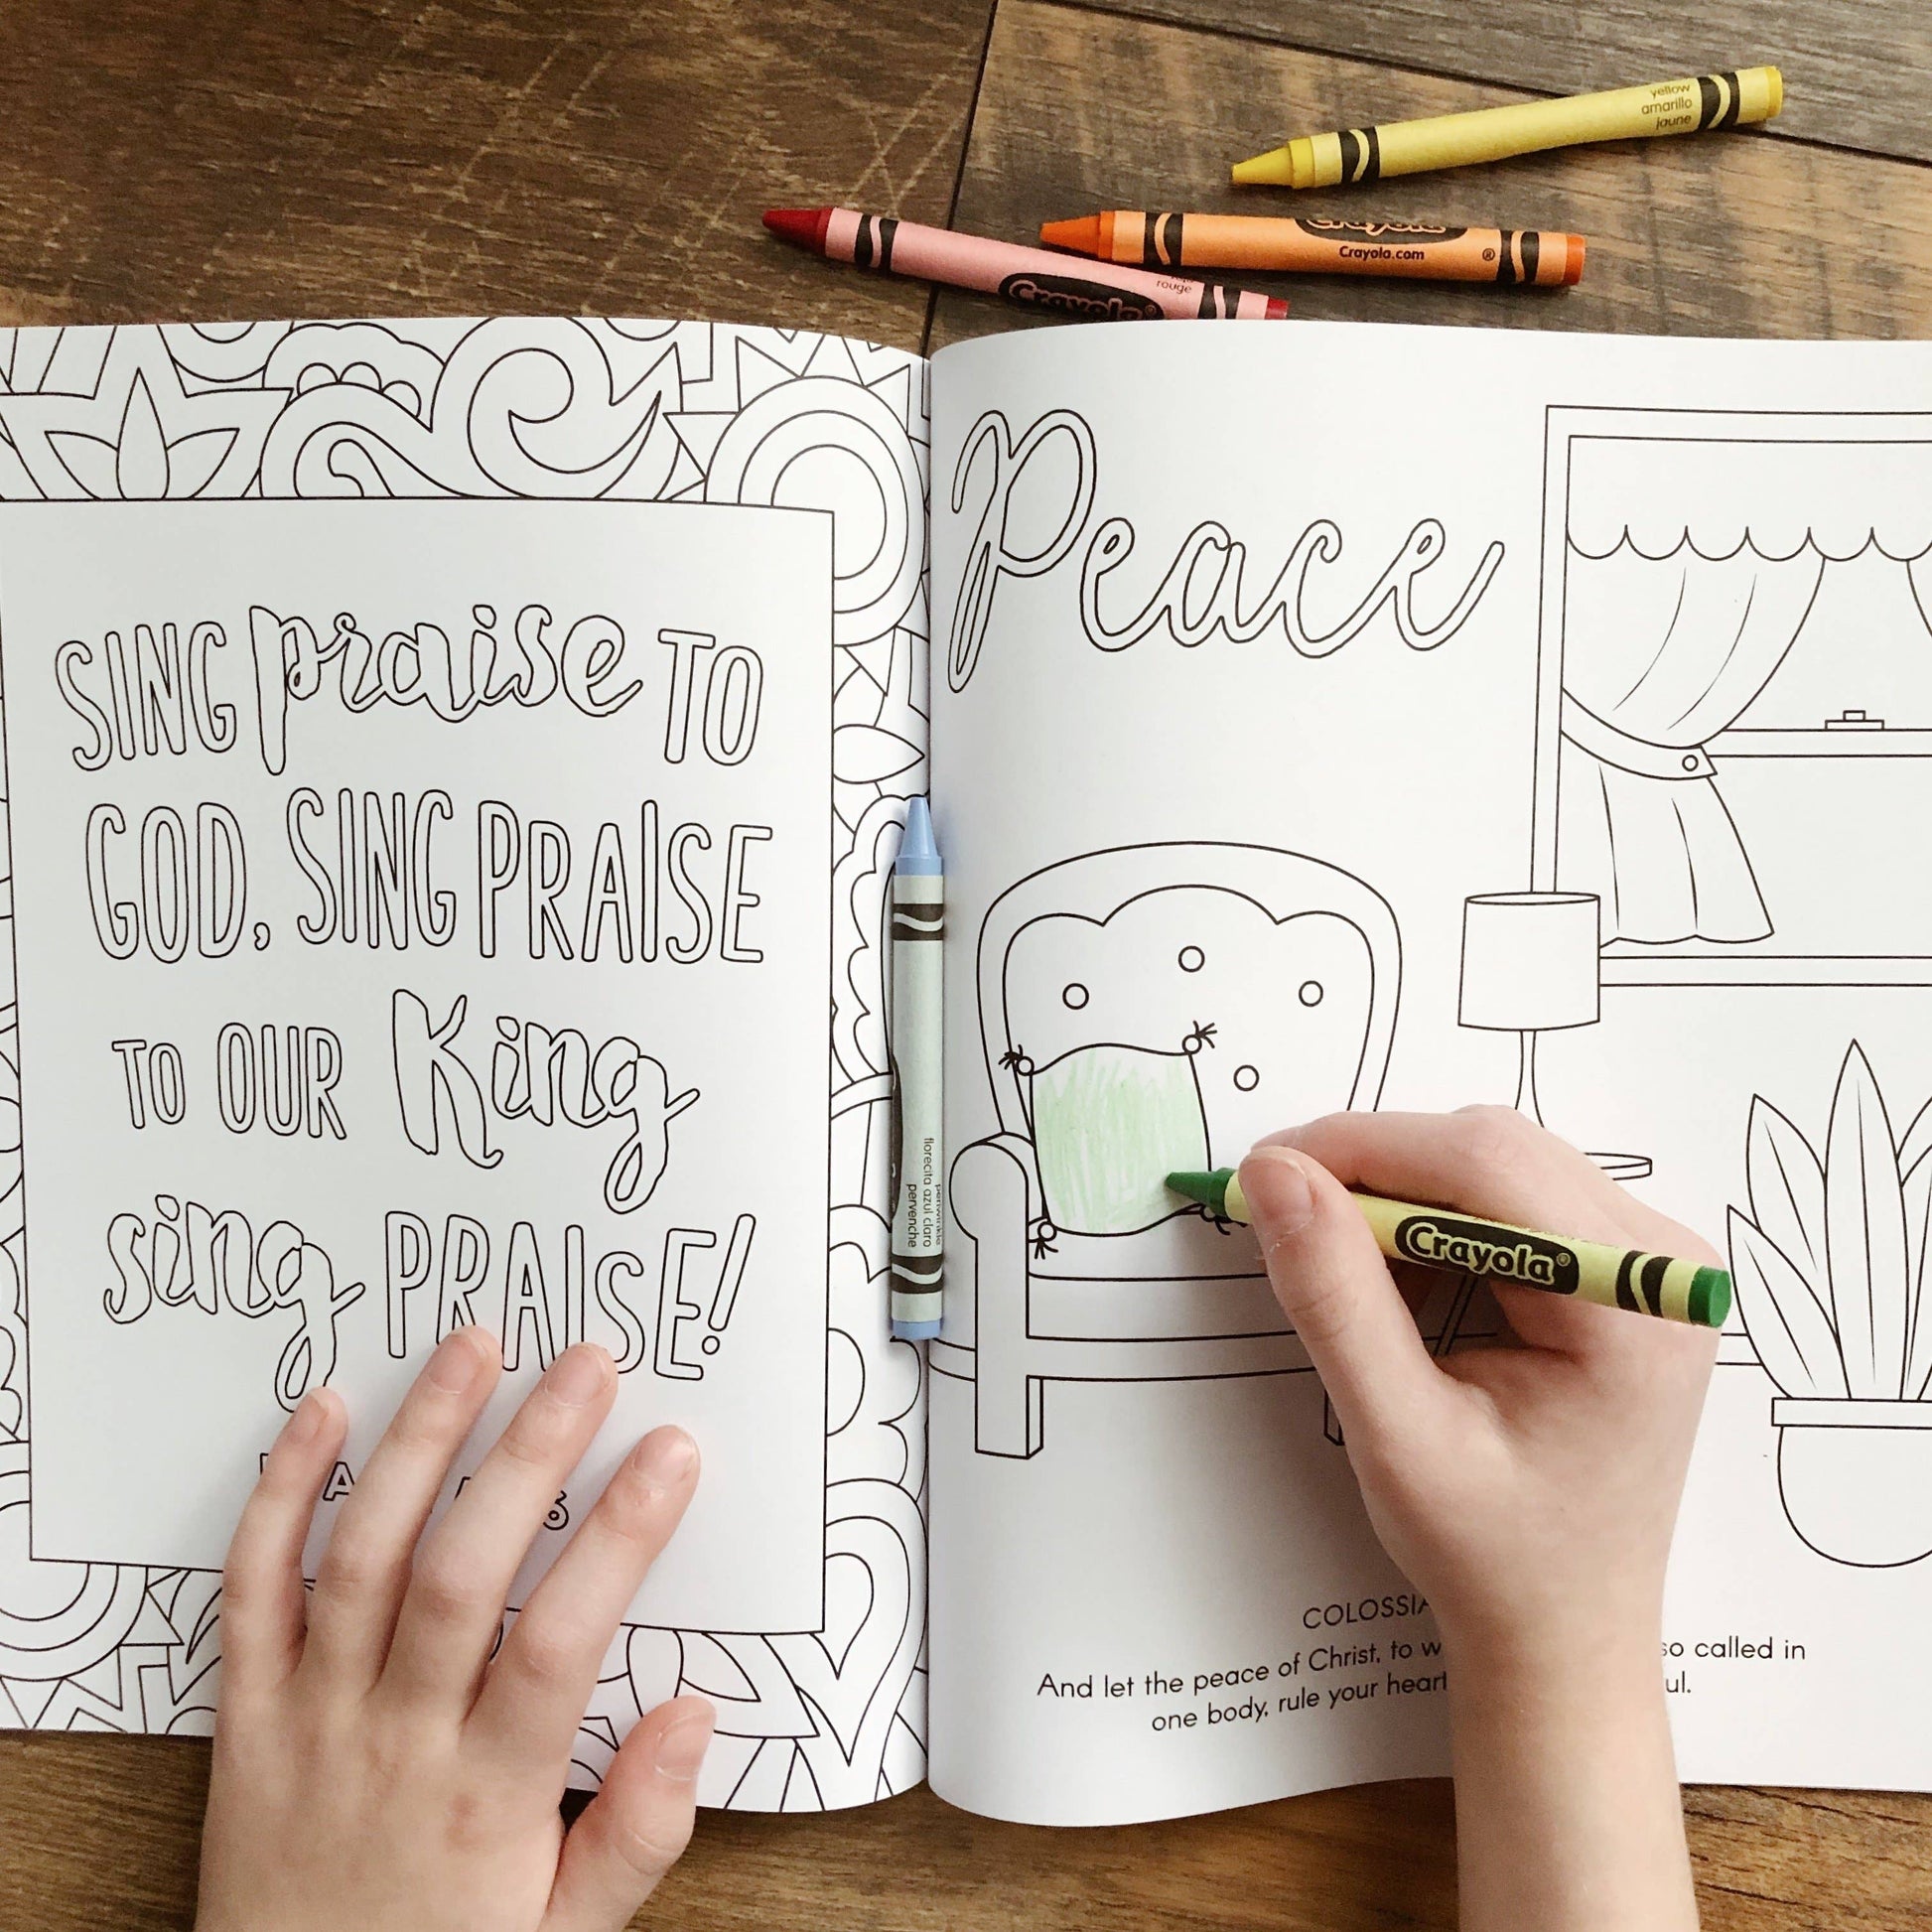 yellow
amarillo
jaune
Crayola
Crayola.com
®
Crayola®
rouge
SING praise TO
GOD, SING PRAISE
TO OUR King
sing PRAISE!
periwinkle
florecita azul claro
pervenche
Peace
Crayola®
And let the peace of Christ, to so called in
one body, rule your